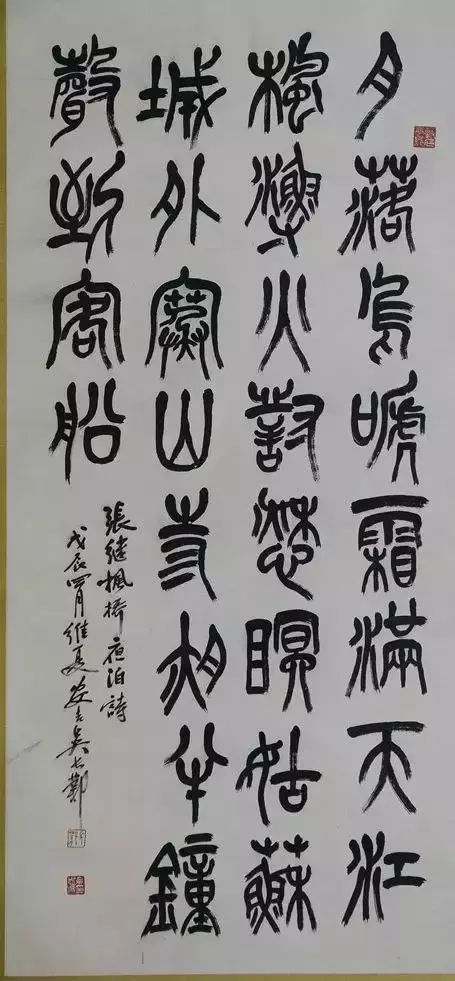 月落烏嗁霜滿天江
楓漁火對愁瞑姑蘇
城外寒山寺夜半鐘
聲到客船
張继楓橋夜泊詩
戊辰四月維夏安吉吳長鄴